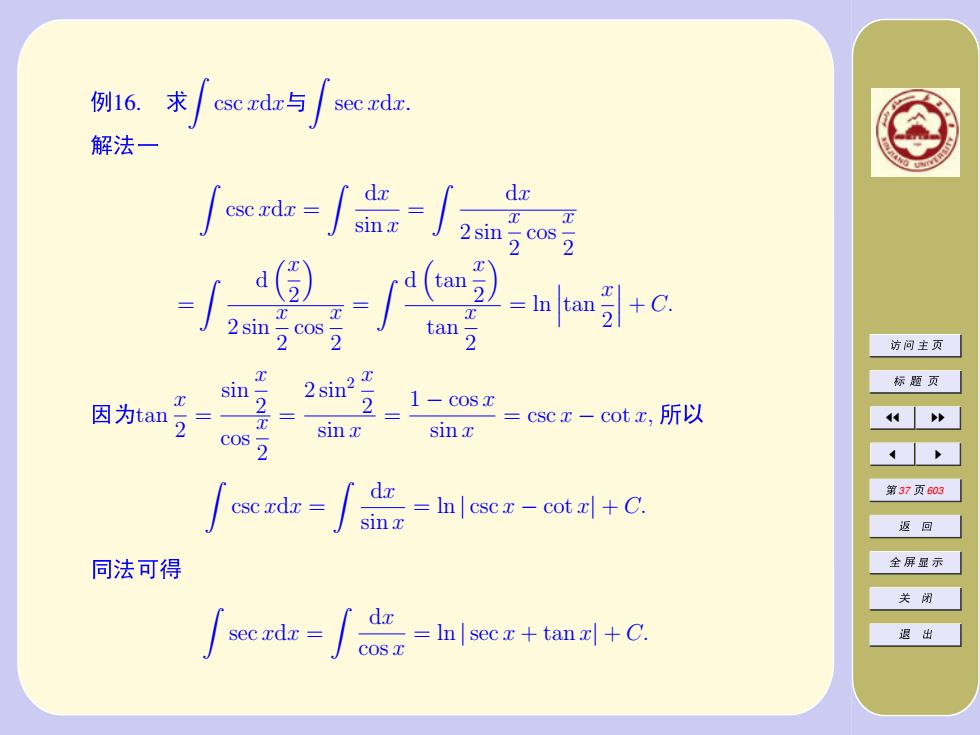 例16. 求∫ csc xdx与∫ sec xdx.
解法一
∫ csc xdx = ∫ dx/(sin x) = ∫ dx/(2 sin (x/2) cos (x/2))
= ∫ d(x/2)/(2 sin (x/2) cos (x/2)) = ∫ d(tan (x/2))/(tan (x/2)) = ln |tan (x/2)| + C.
因为tan (x/2) = (sin (x/2))/(cos (x/2)) = (2 sin² (x/2))/(sin x) = (1 − cos x)/(sin x) = csc x − cot x, 所以
∫ csc xdx = ∫ dx/(sin x) = ln | csc x − cot x| + C.
同法可得
∫ sec xdx = ∫ dx/(cos x) = ln | sec x + tan x| + C.
XINJIANG UNIVERSITY
访问主页
标题页
第37页603
返回
全屏显示
关闭
退出